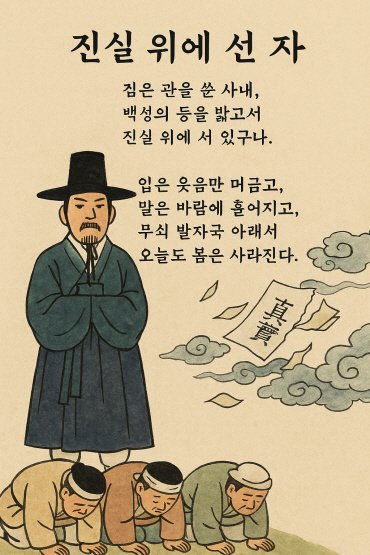 진실 위에 선 자
짐은 관을 쓴 사내,
백성의 등을 밟고서
진실 위에 서 있구나.
입은 웃음만 머금고,
말은 바람에 흩어지고,
무쇠 발자국 아래서
오늘도 봄은 사라진다.
真實